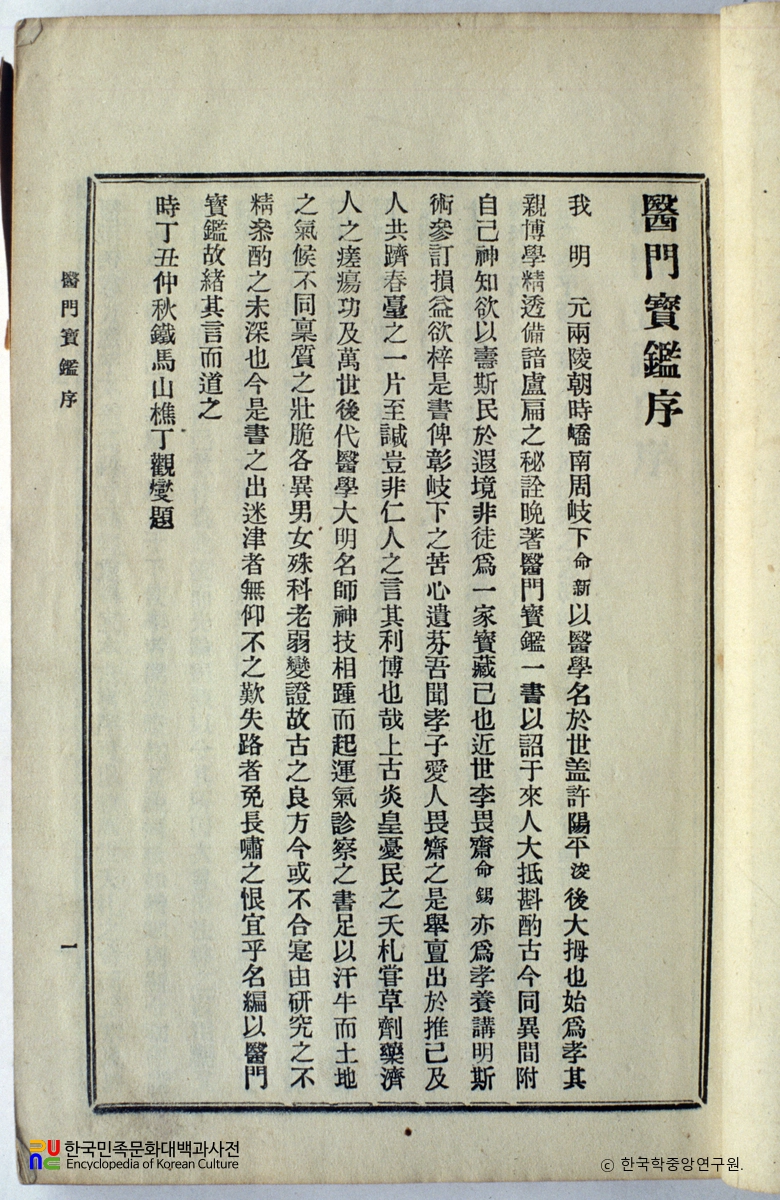 醫門寶鑑序
我　明　元兩陵朝時嶠南周岐下命新以醫學名於世盖許陽平浚後大拇也始爲孝其
親博學精透備諳盧扁之秘詮晩著醫門寶鑑一書以詔于來人大抵斟酌古今同異間附
自己神知欲以壽斯民於遐境非徒爲一家寶藏已也近世李畏齋命錫亦爲孝養講明斯
術參訂損益欲梓是書俾彰岐下之苦心遺芬吾聞孝子愛人畏齋之是舉亶出於推己及
人共躋春臺之一片至諴豈非仁人之言其利博也哉上古炎皇憂民之夭札甞草劑藥濟
人之瘥瘍功及萬世後代醫學大明名師神技相踵而起運氣診察之書足以汗牛而土地
之氣候不同稟質之壯脆各異男女殊科老弱變證故古之良方今或不合寔由研究之不
精叅酌之未深也今是書之出迷津者無仰不之歎失路者免長嘯之恨宜乎名編以醫門
寶鑑故緖其言而道之
時丁丑仲秋鐵馬山樵丁觀燮題
醫門寶鑑序
一
한국민족문화대백과사전
Encyclopedia of Korean Culture
ⓒ 한국학중앙연구원.